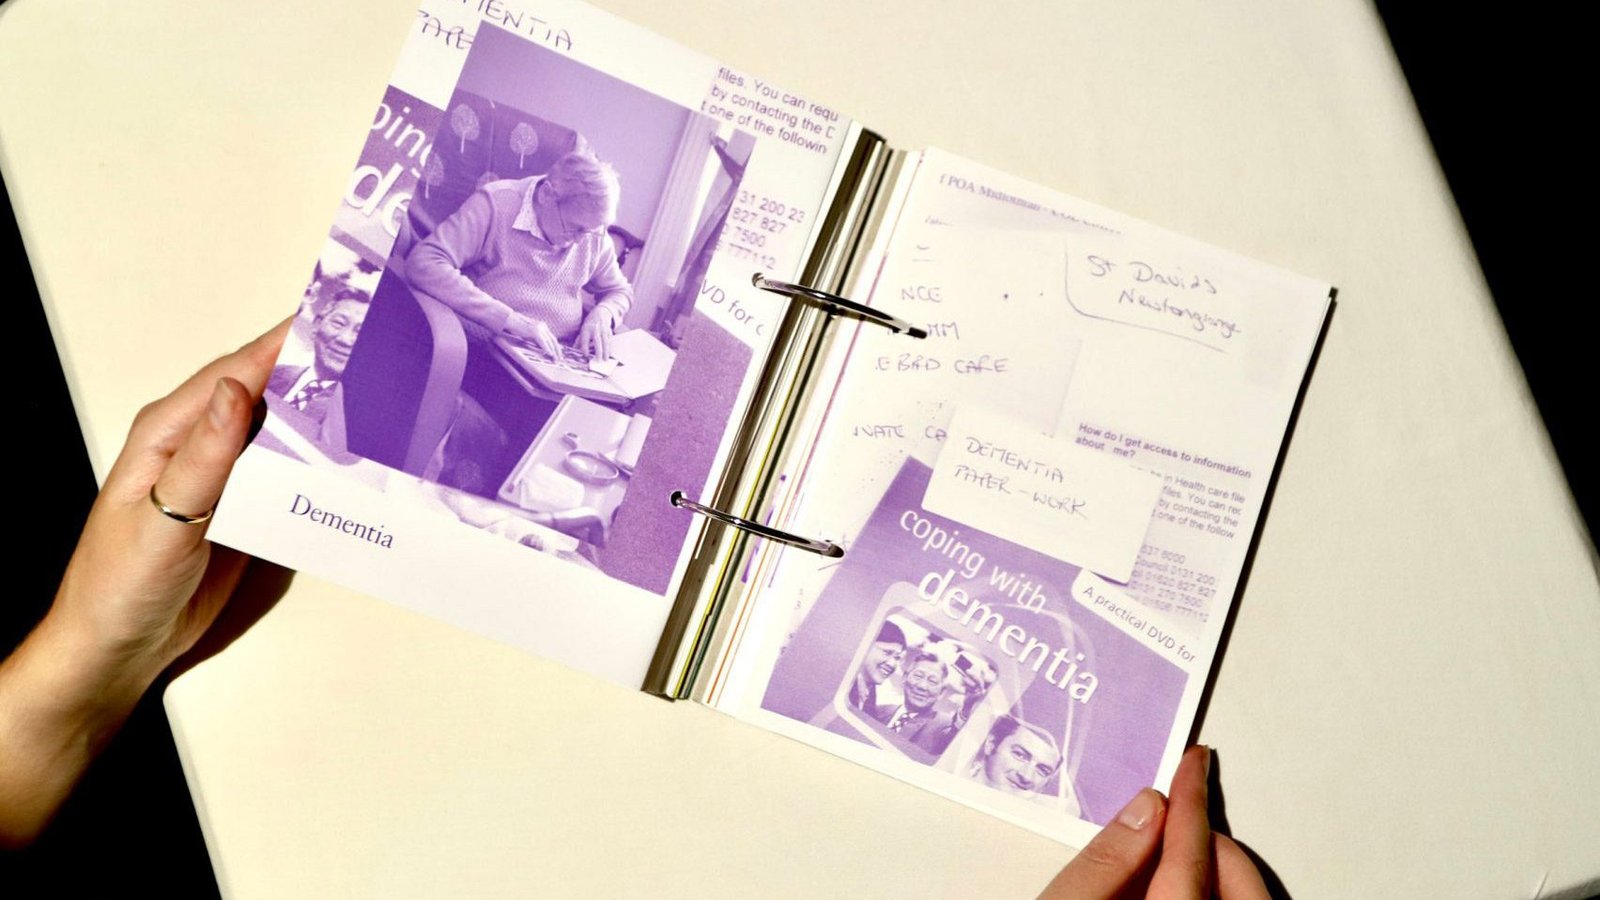 DEMENTIA
PAPE
ping
de
files. You can requ
by contacting the D
t one of the followin
31 200 23
827 827
7500
777112
VD for
Dementia
f POA Midlothian
St Davids
Newtongrange
NCE
E BAD CARE
NATE CA
DEMENTIA
PAPER-WORK
How do I get access to information
about me?
in Health care file
files. You can rec
by contacting the
one of the follow
537 6000
Council 0131 200
01620 827 827
0131 270 7500
01506 777112
coping with
dementia
A practical DVD for